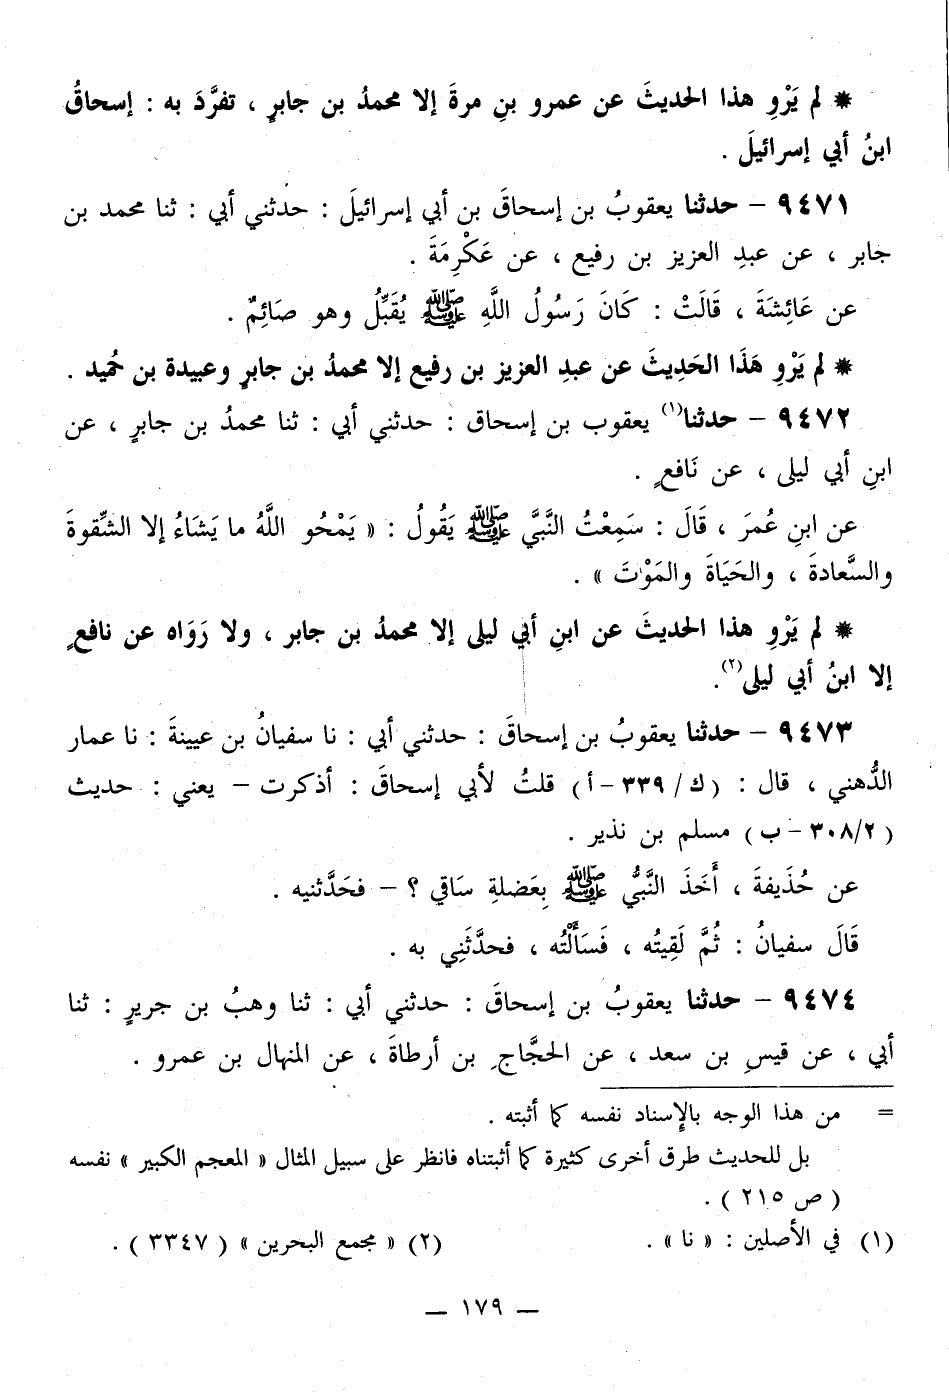 * لم يَرْوِ هذا الحديثَ عن عمرو بنِ مرةَ إلا محمدُ بن جابرٍ ، تفرَّدَ به : إسحاقُ
ابنُ أبي إسرائيلَ .
٩٤٧١ – حدثنا يعقوبُ بن إسحاقَ بن أبي إسرائيلَ : حدثني أبي : ثنا محمد بن
جابر ، عن عبدِ العزيز بن رفيع ، عن عَكْرِمَةَ .
عن عَائِشَةَ ، قَالَتْ : كَانَ رَسُولُ اللَّهِ ﷺ يُقَبِّلُ وهو صَائِمٌ .
* لم يَرْوِ هَذَا الحَدِيثَ عن عبدِ العزيز بن رفيع إلا محمدُ بن جابرٍ وعبيدة بن حُميد .
٩٤٧٢ – حدثنا(١) يعقوب بن إسحاق : حدثني أبي : ثنا محمدُ بن جابرٍ ، عن
ابنِ أبي ليلى ، عن نَافعٍ .
عن ابنِ عُمرَ ، قَالَ : سَمِعْتُ النَّبيَّ ﷺ يَقُولُ : « يَمْحُو اللَّهُ ما يَشَاءُ إلا الشِّقوةَ
والسَّعادةَ ، والحَيَاةَ والمَوْتَ » .
* لم يَرْوِ هذا الحديثَ عن ابنِ أبي ليلى إلا محمدُ بن جابر ، ولا رَوَاه عن نافعٍ
إلا ابنُ أبي ليلى(٢).
٩٤٧٣ – حدثنا يعقوبُ بن إسحاقَ : حدثني أبي : نا سفيانُ بن عيينةَ : نا عمار
الدُّهني ، قال : (ك/٣٣٩-أ) قلتُ لأبي إسحاقَ : أذكرت – يعني : حديث
(٣٠٨/٢-ب) مسلم بن نذير .
عن حُذَيفةَ ، أَخَذَ النَّبيُّ ﷺ بِعَضلةِ سَاقي ؟ – فحَدَّثنيه .
قَالَ سفيانُ : ثُمَّ لَقِيتُه ، فَسَأَلْتُه ، فحدَّثَنِي به .
٩٤٧٤ – حدثنا يعقوبُ بن إسحاقَ : حدثني أبي : ثنا وهبُ بن جريرٍ : ثنا
أبي ، عن قيسِ بن سعد ، عن الحجَّاجِ بن أرطاةَ ، عن المنهال بن عمرو .
= من هذا الوجه بالإسناد نفسه كما أثبته .
بل للحديث طرق أخرى كثيرة كما أثبتناه فانظر على سبيل المثال « المعجم الكبير » نفسه
( ص ٢١٥ ) .
(١) في الأصلين : « نا » . (٢) « مجمع البحرين » ( ٣٣٤٧ ) .
– ١٧٩ –